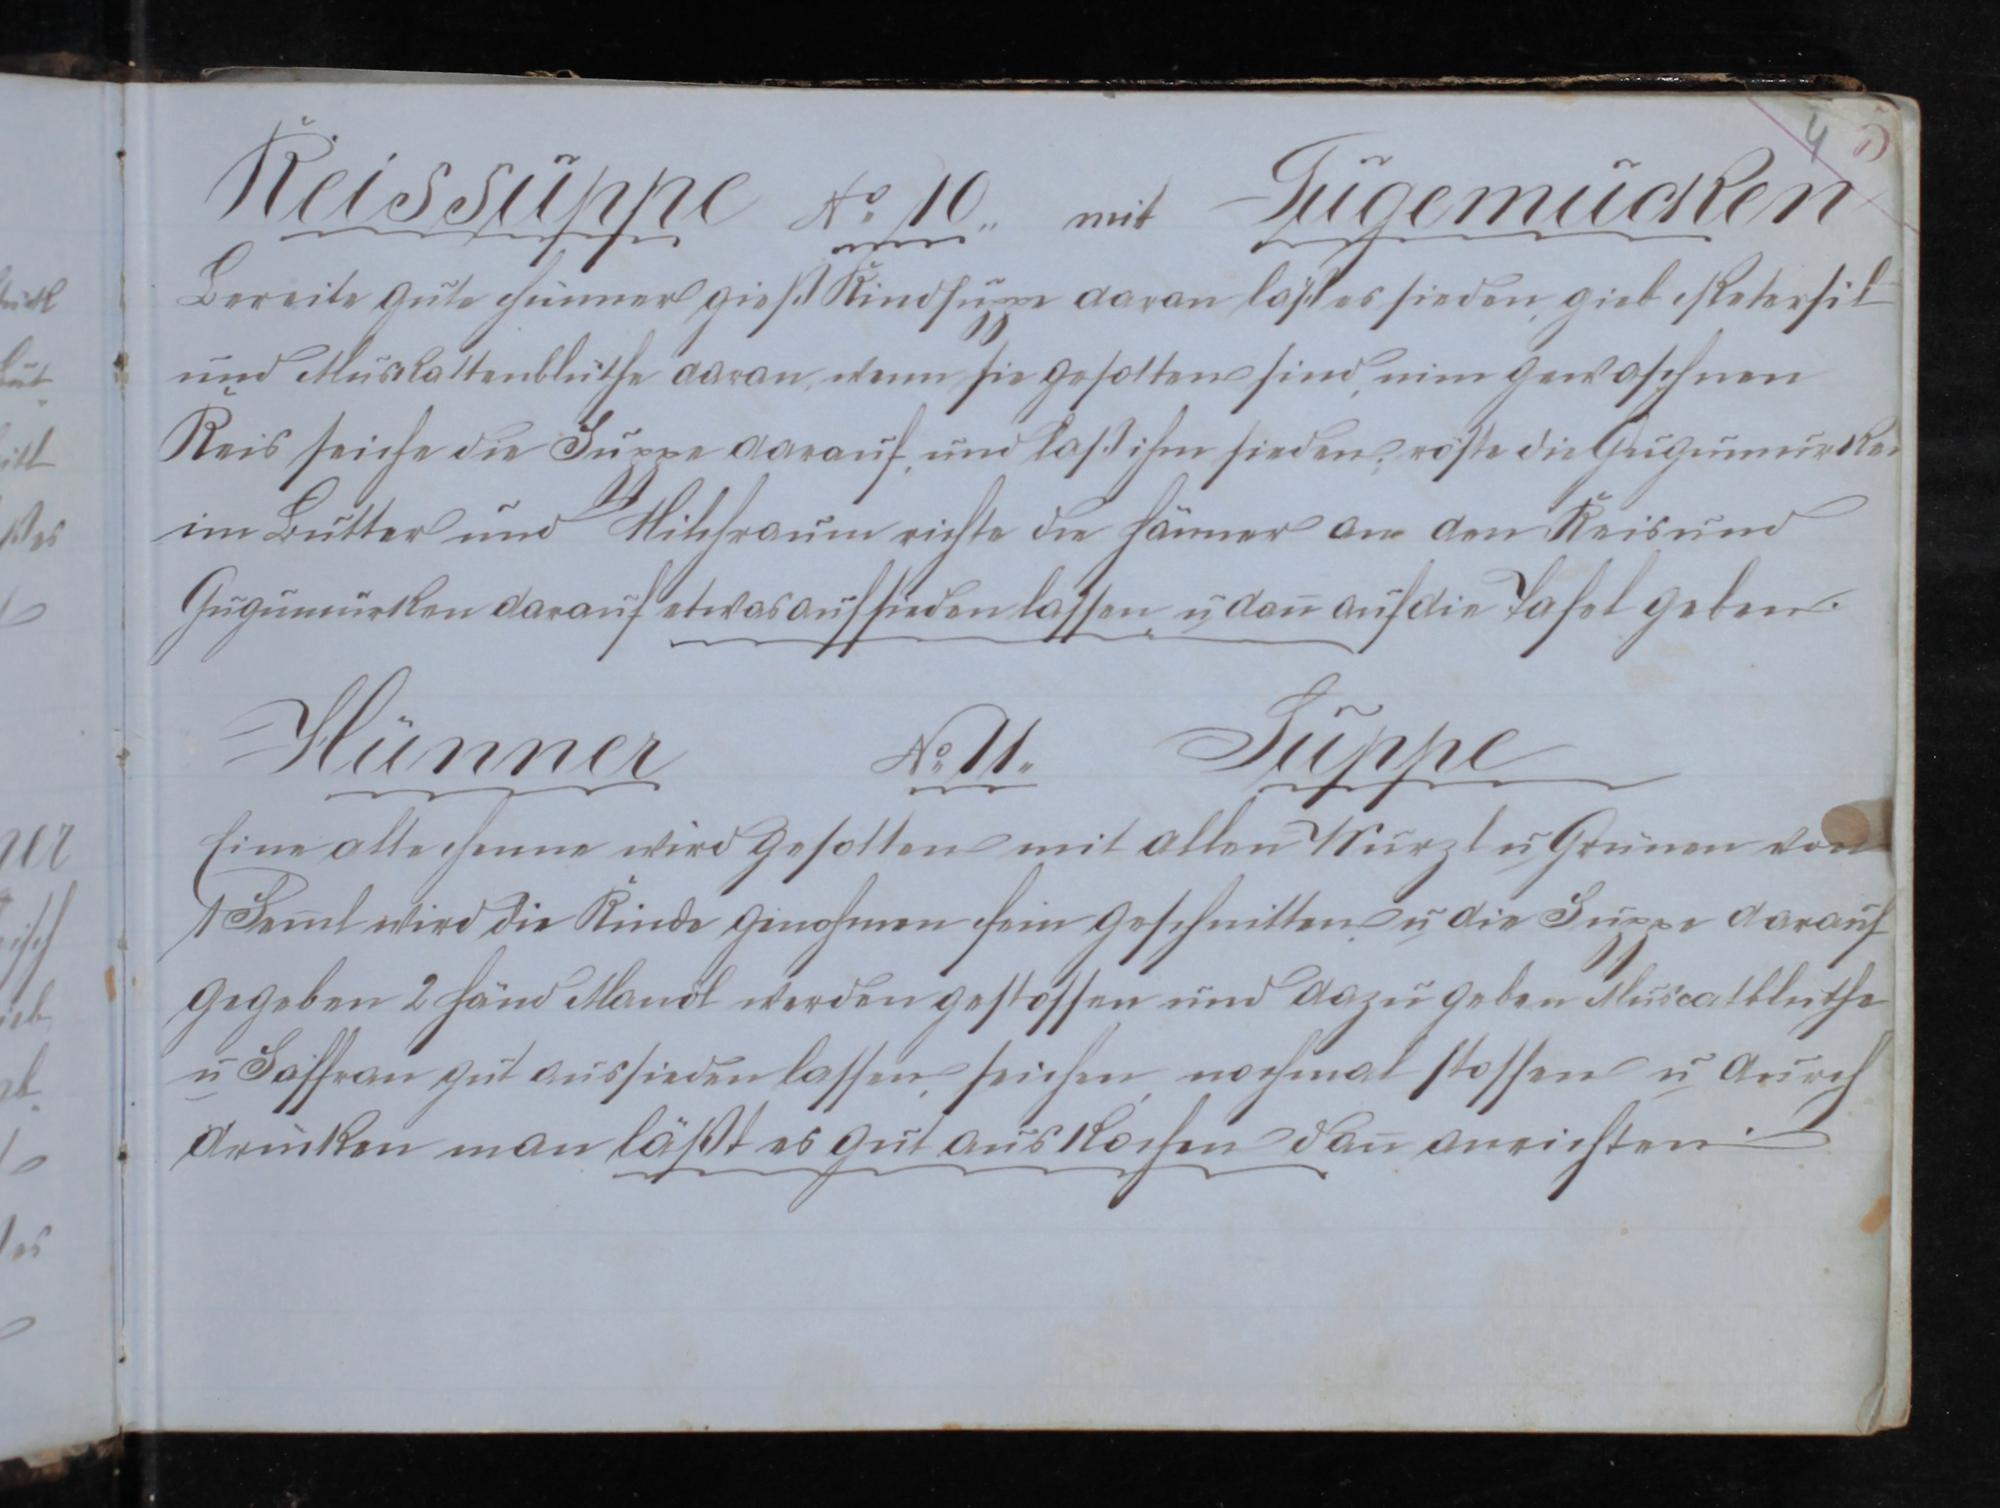 4 5
Reissuppe No 10 mit Gugemucken
Bereite gute Hünner gieß Rindsuppe daran laß es sieden, gieb Petersil
und Muskattenblüthe daran, wenn sie gesotten sind, nim gewaschnen
Reis seiche die Suppe darauf, und laß ihm sieden, röste die Gugumurken
im Butter und Milchraum richte die Hänner an den Reis und
Gugumurken darauf etwas aufsieden lassen u dan̄ auf die Tafel geben.
Hünner No 11. Suppe
Eine alte Henne wird gesotten mit allen Wurzl u Grünen von
1 Sem̄l wird die Rinde genohmen fein geschnitten u die Suppe darauf
gegeben 2 Händ Mandl werden gestossen und dazu geben Muscatblüthe
u Saffran gut aussieden lassen, seichen, nochmal stossen u durch
drücken man läßt es gut auskochen dan̄ anrichten.